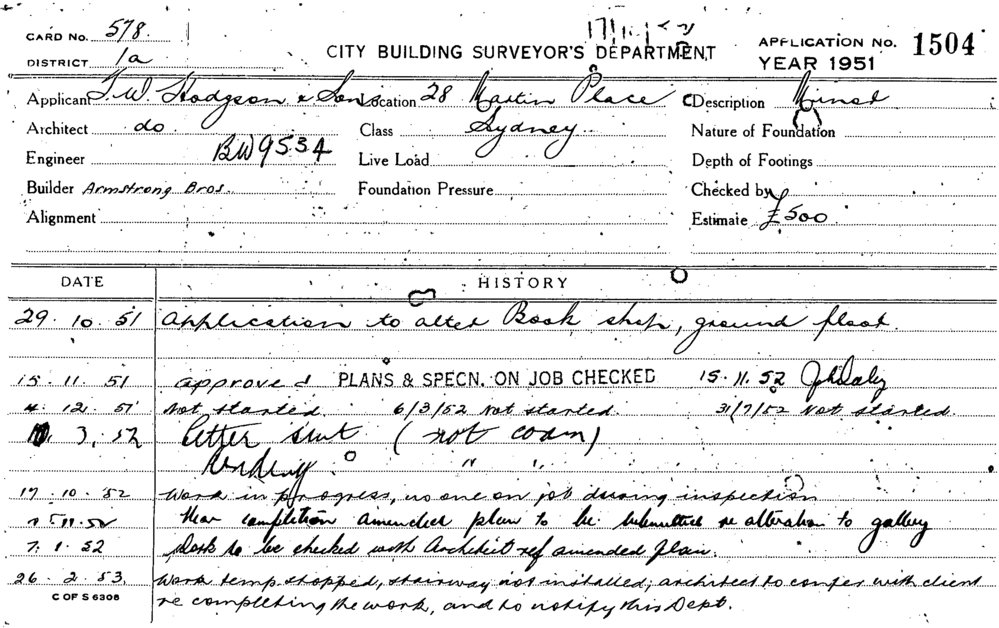 CARD No. 578.
DISTRICT 1a
CITY BUILDING SURVEYOR'S DEPARTMENT
APPLICATION No. 1504
YEAR 1951
Applicant T.W. Hodgson & Sons Location 28 Martin Place Description
Architect do Class Sydney Nature of Foundation
Engineer BW9534 Live Load Depth of Footings
Builder Armstrong Bros. Foundation Pressure Checked by
Alignment Estimate £500
DATE HISTORY
29. 10. 51 Application to alter Book shop, ground floor.
15. 11. 51 approved PLANS & SPECN. ON JOB CHECKED 15.11.52
4. 12. 51 Not started. 6/3/52 Not started. 31/7/52 Not started.
3. 52 Letter sent (not comm)
" "
17. 10. 52 Work in progress, no one on job during inspection
Near completion amended plan to be submitted re alteration to gallery
7. 1. 52 to be checked with Architect ref amended plan.
26. 2. 53. Work temp. stopped, stairway not installed; architect to confer with client
re completing the work, and to notify this Dept.
C OF S 6306